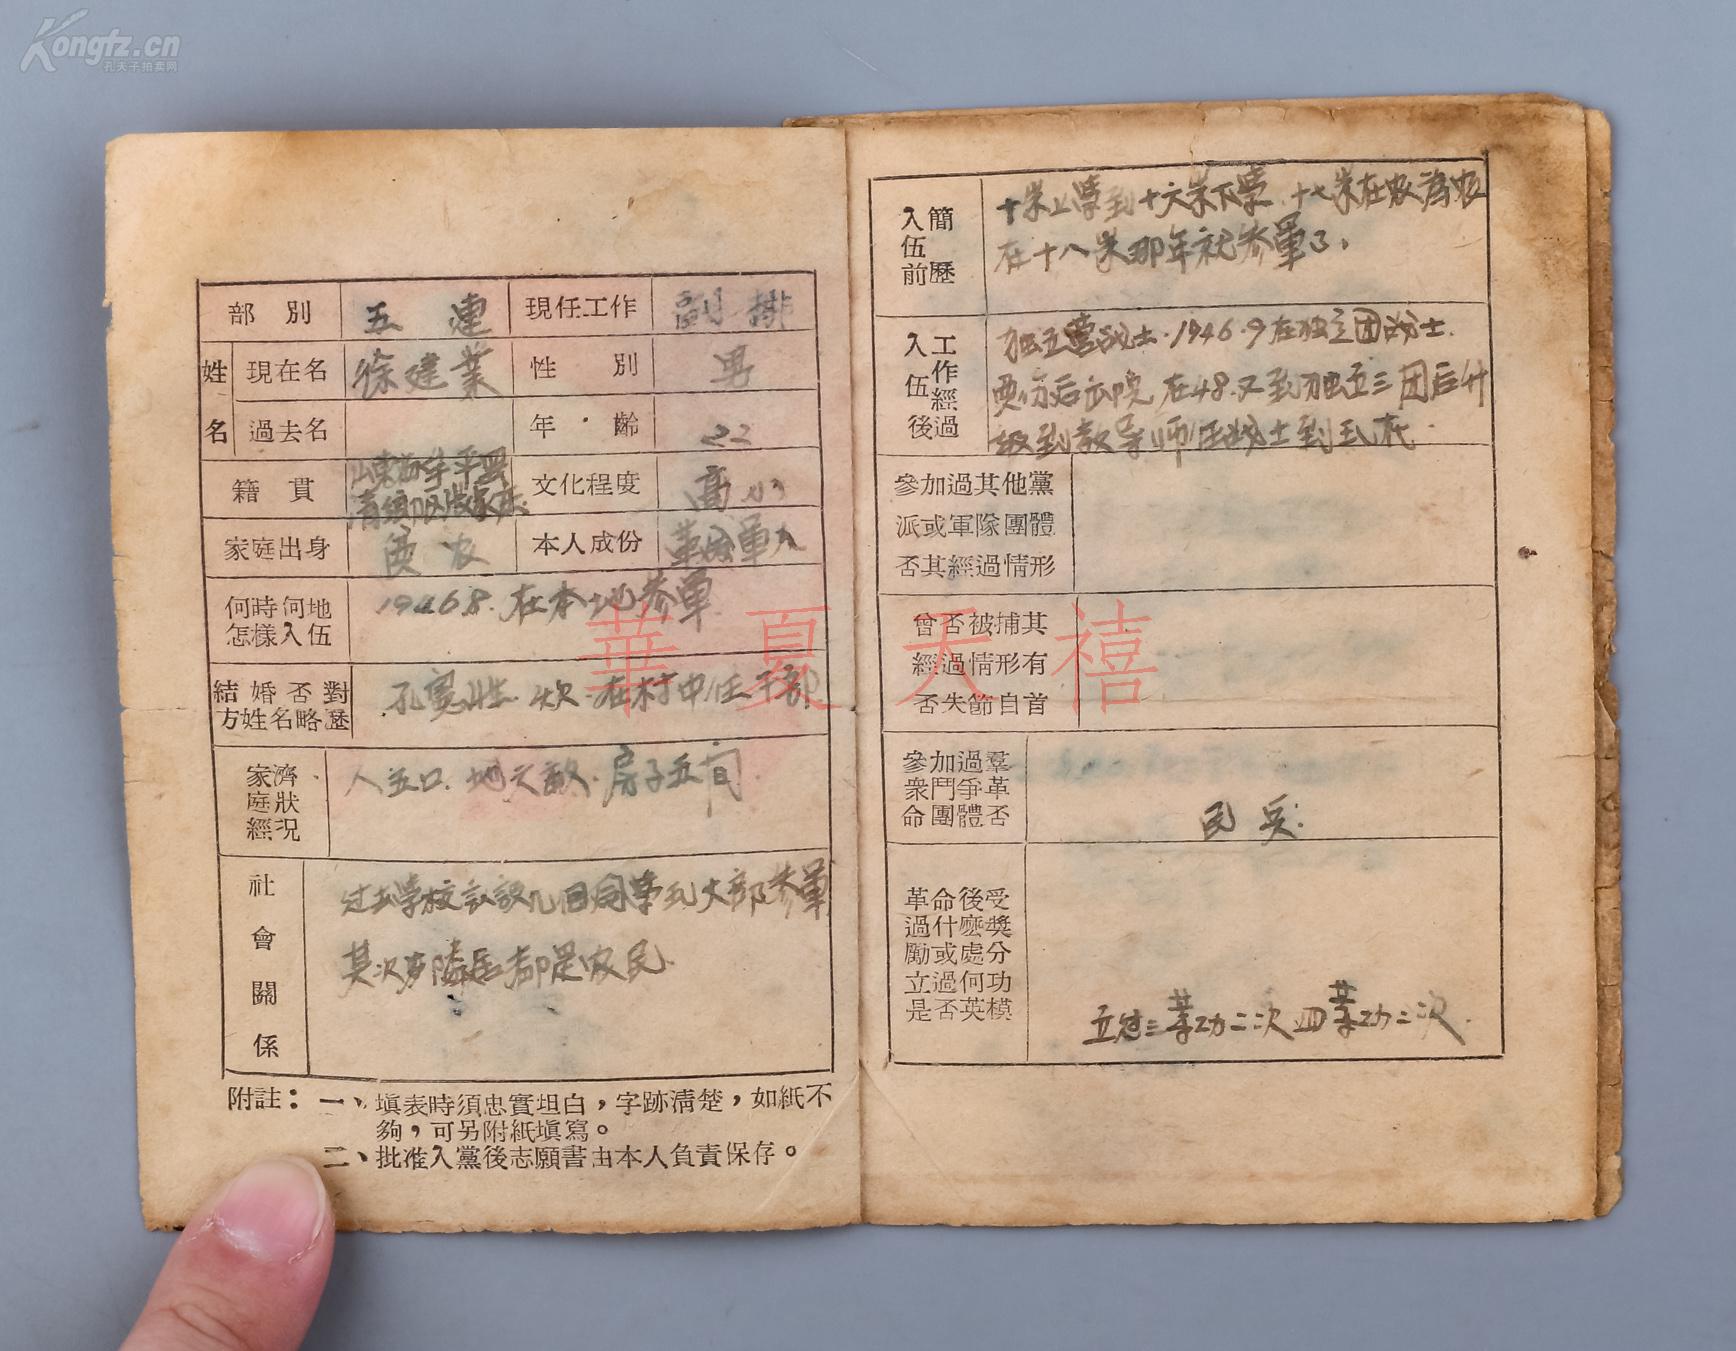 Kongfz.cn
孔夫子拍卖网
部別 五連 現任工作 副排
姓名 現在名 徐建業 性別 男
過去名 年齡 22
籍貫 山東 文化程度 高小
家庭出身 农 本人成份 革命軍人
何時何地怎樣入伍 1946.8.在本地参軍
結婚否對方姓名略歷 孔憲 在村中任干部
家庭經濟狀況 人五口.地六畝.房子五间
社會關係 过去学校 几個同学 大部参軍
其次 隣居都是农民.
附註：一、填表時須忠實坦白，字跡清楚，如紙不
夠，可另附紙填寫。
二、批准入黨後志願書由本人負責保存。
入伍前簡歷 十岁上學到十六岁下學.十七岁在家為农
在十八岁那年就参軍了.
入伍後工作經過 独立营战士.1946.9在独立团战士.
后 在48.又到独立三团后升
级到教导师任战士到现在.
參加過其他黨
派或軍隊團體
否其經過情形
曾否被捕其
經過情形有
否失節自首
參加過羣
衆鬥爭革
命團體否 民兵.
革命後受
過什麽獎
勵或處分
立過何功
是否英模 立过三等功二次四等功二次.
華夏天禧